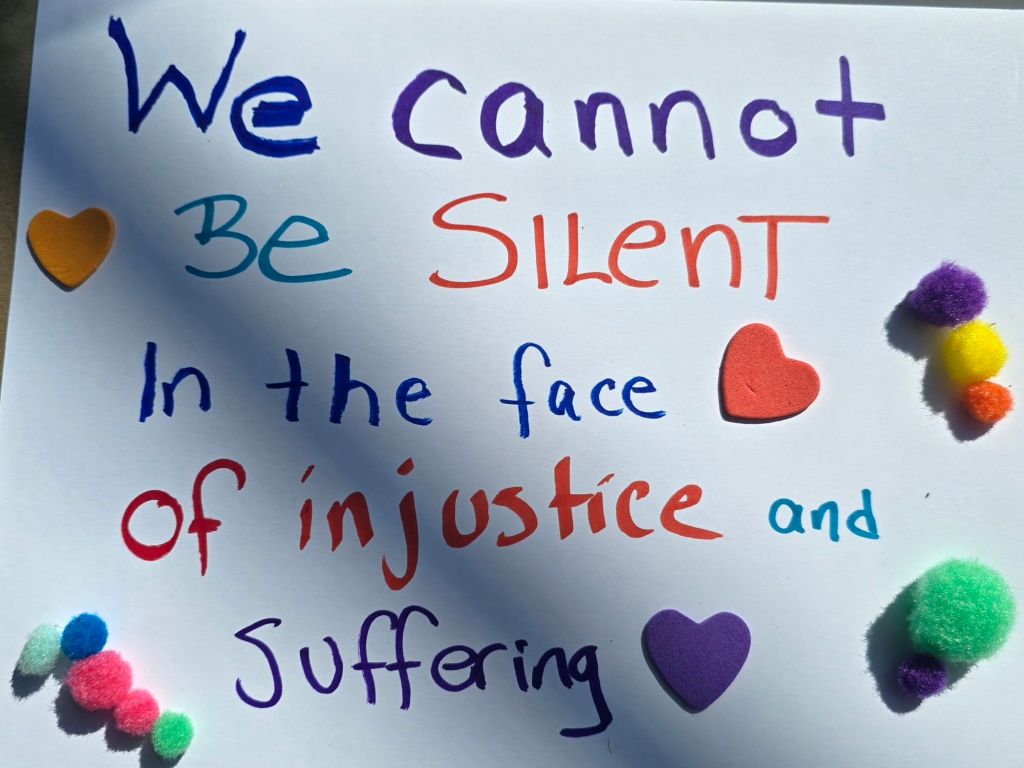 We cannot
Be SILenT
In the face
of injustice and
Suffering